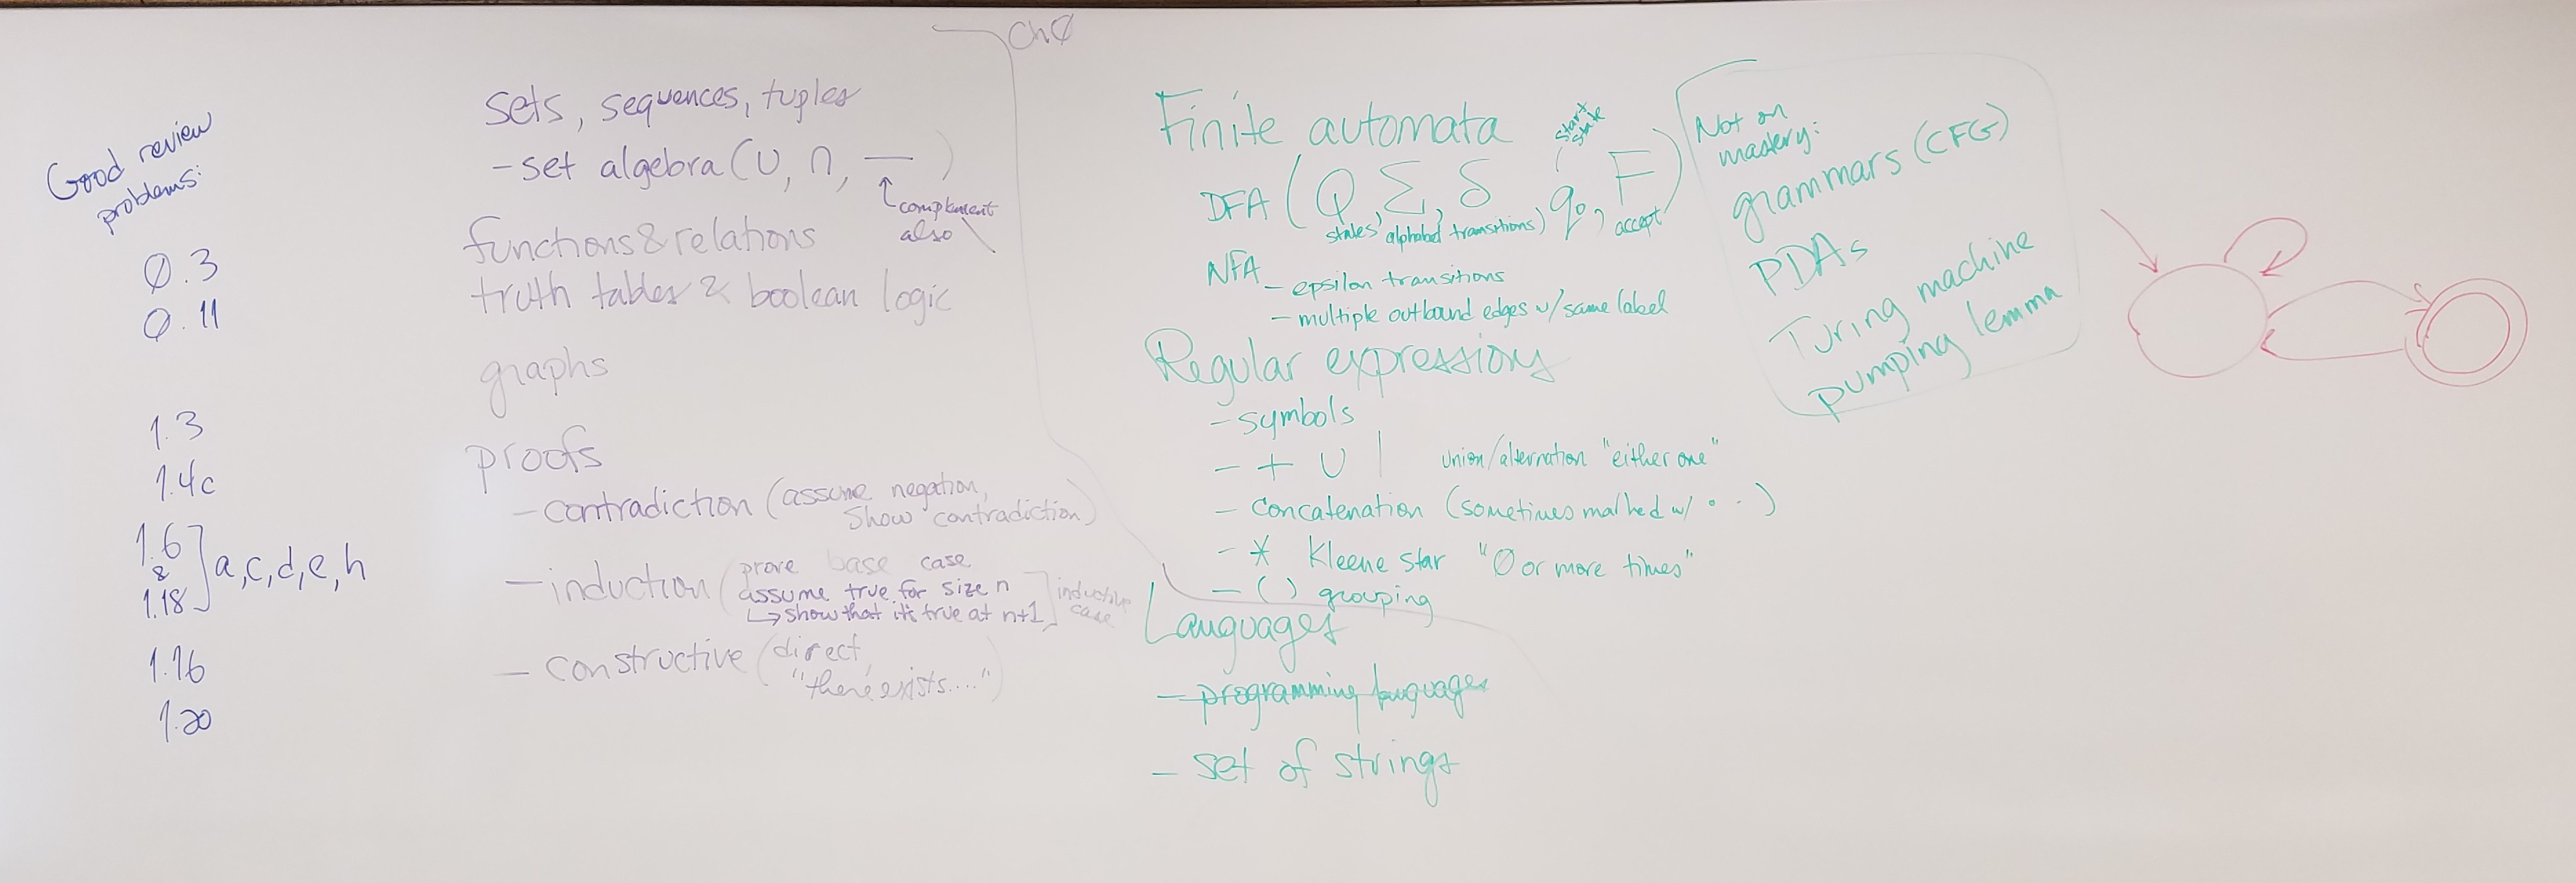 Good review
problems:
Ø.3
Ø.11
1.3
1.4c
1.6
&
1.18
a,c,d,e,h
1.16
1.20
ChØ
sets, sequences, tuples
-set algebra (∪, ∩, — )
complement
also \
functions & relations
truth tables & boolean logic
graphs
proofs
- contradiction (assume negation,
show contradiction)
- induction (prove base case
assume true for size n
↳ show that it's true at n+1
inductive
case
- constructive (direct,
"there exists....")
Finite automata
start
state
DFA (Q, Σ, δ q₀, F)
states alphabet transitions) accept
NFA - epsilon transitions
- multiple outbound edges w/ same label
Regular expressions
- symbols
- + ∪ | union/alternation "either one"
- Concatenation (sometimes marked w/ ∘ · )
- * Kleene star "Ø or more times"
- ( ) grouping
Languages
- programming languages
- set of strings
Not on
mastery:
grammars (CFG)
PDAs
Turing machine
pumping lemma